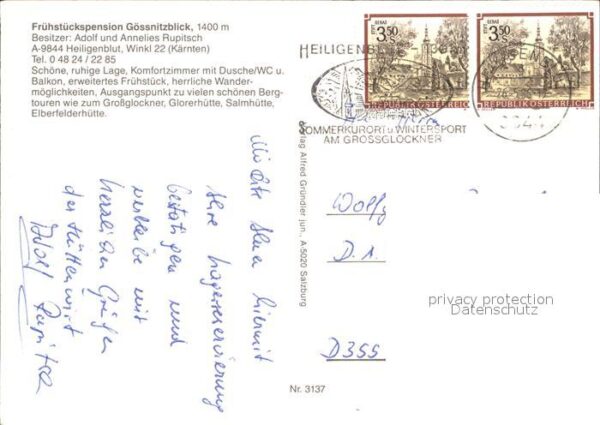 Frühstückspension Gössnitzblick, 1400 m
Besitzer: Adolf und Annelies Rupitsch
A-9844 Heiligenblut, Winkl 22 (Kärnten)
Tel. 0 48 24 / 22 85
Schöne, ruhige Lage, Komfortzimmer mit Dusche/WC u.
Balkon, erweitertes Frühstück, herrliche Wander-
möglichkeiten, Ausgangspunkt zu vielen schönen Berg-
touren wie zum Großglockner, Glorerhütte, Salmhütte,
Elberfelderhütte.
Möchte Ihnen hiermit
Ihre Lagerreservierung
bestätigen und
verbleibe mit
herzlichen Grüßen
der Hüttenwirt
Adolf Rupitsch
Verlag Alfred Gründler jun., A-5020 Salzburg
3.50
REPUBLIK ÖSTERREICH
3.50
REPUBLIK ÖSTERREICH
SOMMERKURORT u WINTERSPORT
AM GROSSGLOCKNER
Herrn
Wolfg
D 355
privacy protection
Datenschutz
Nr. 3137